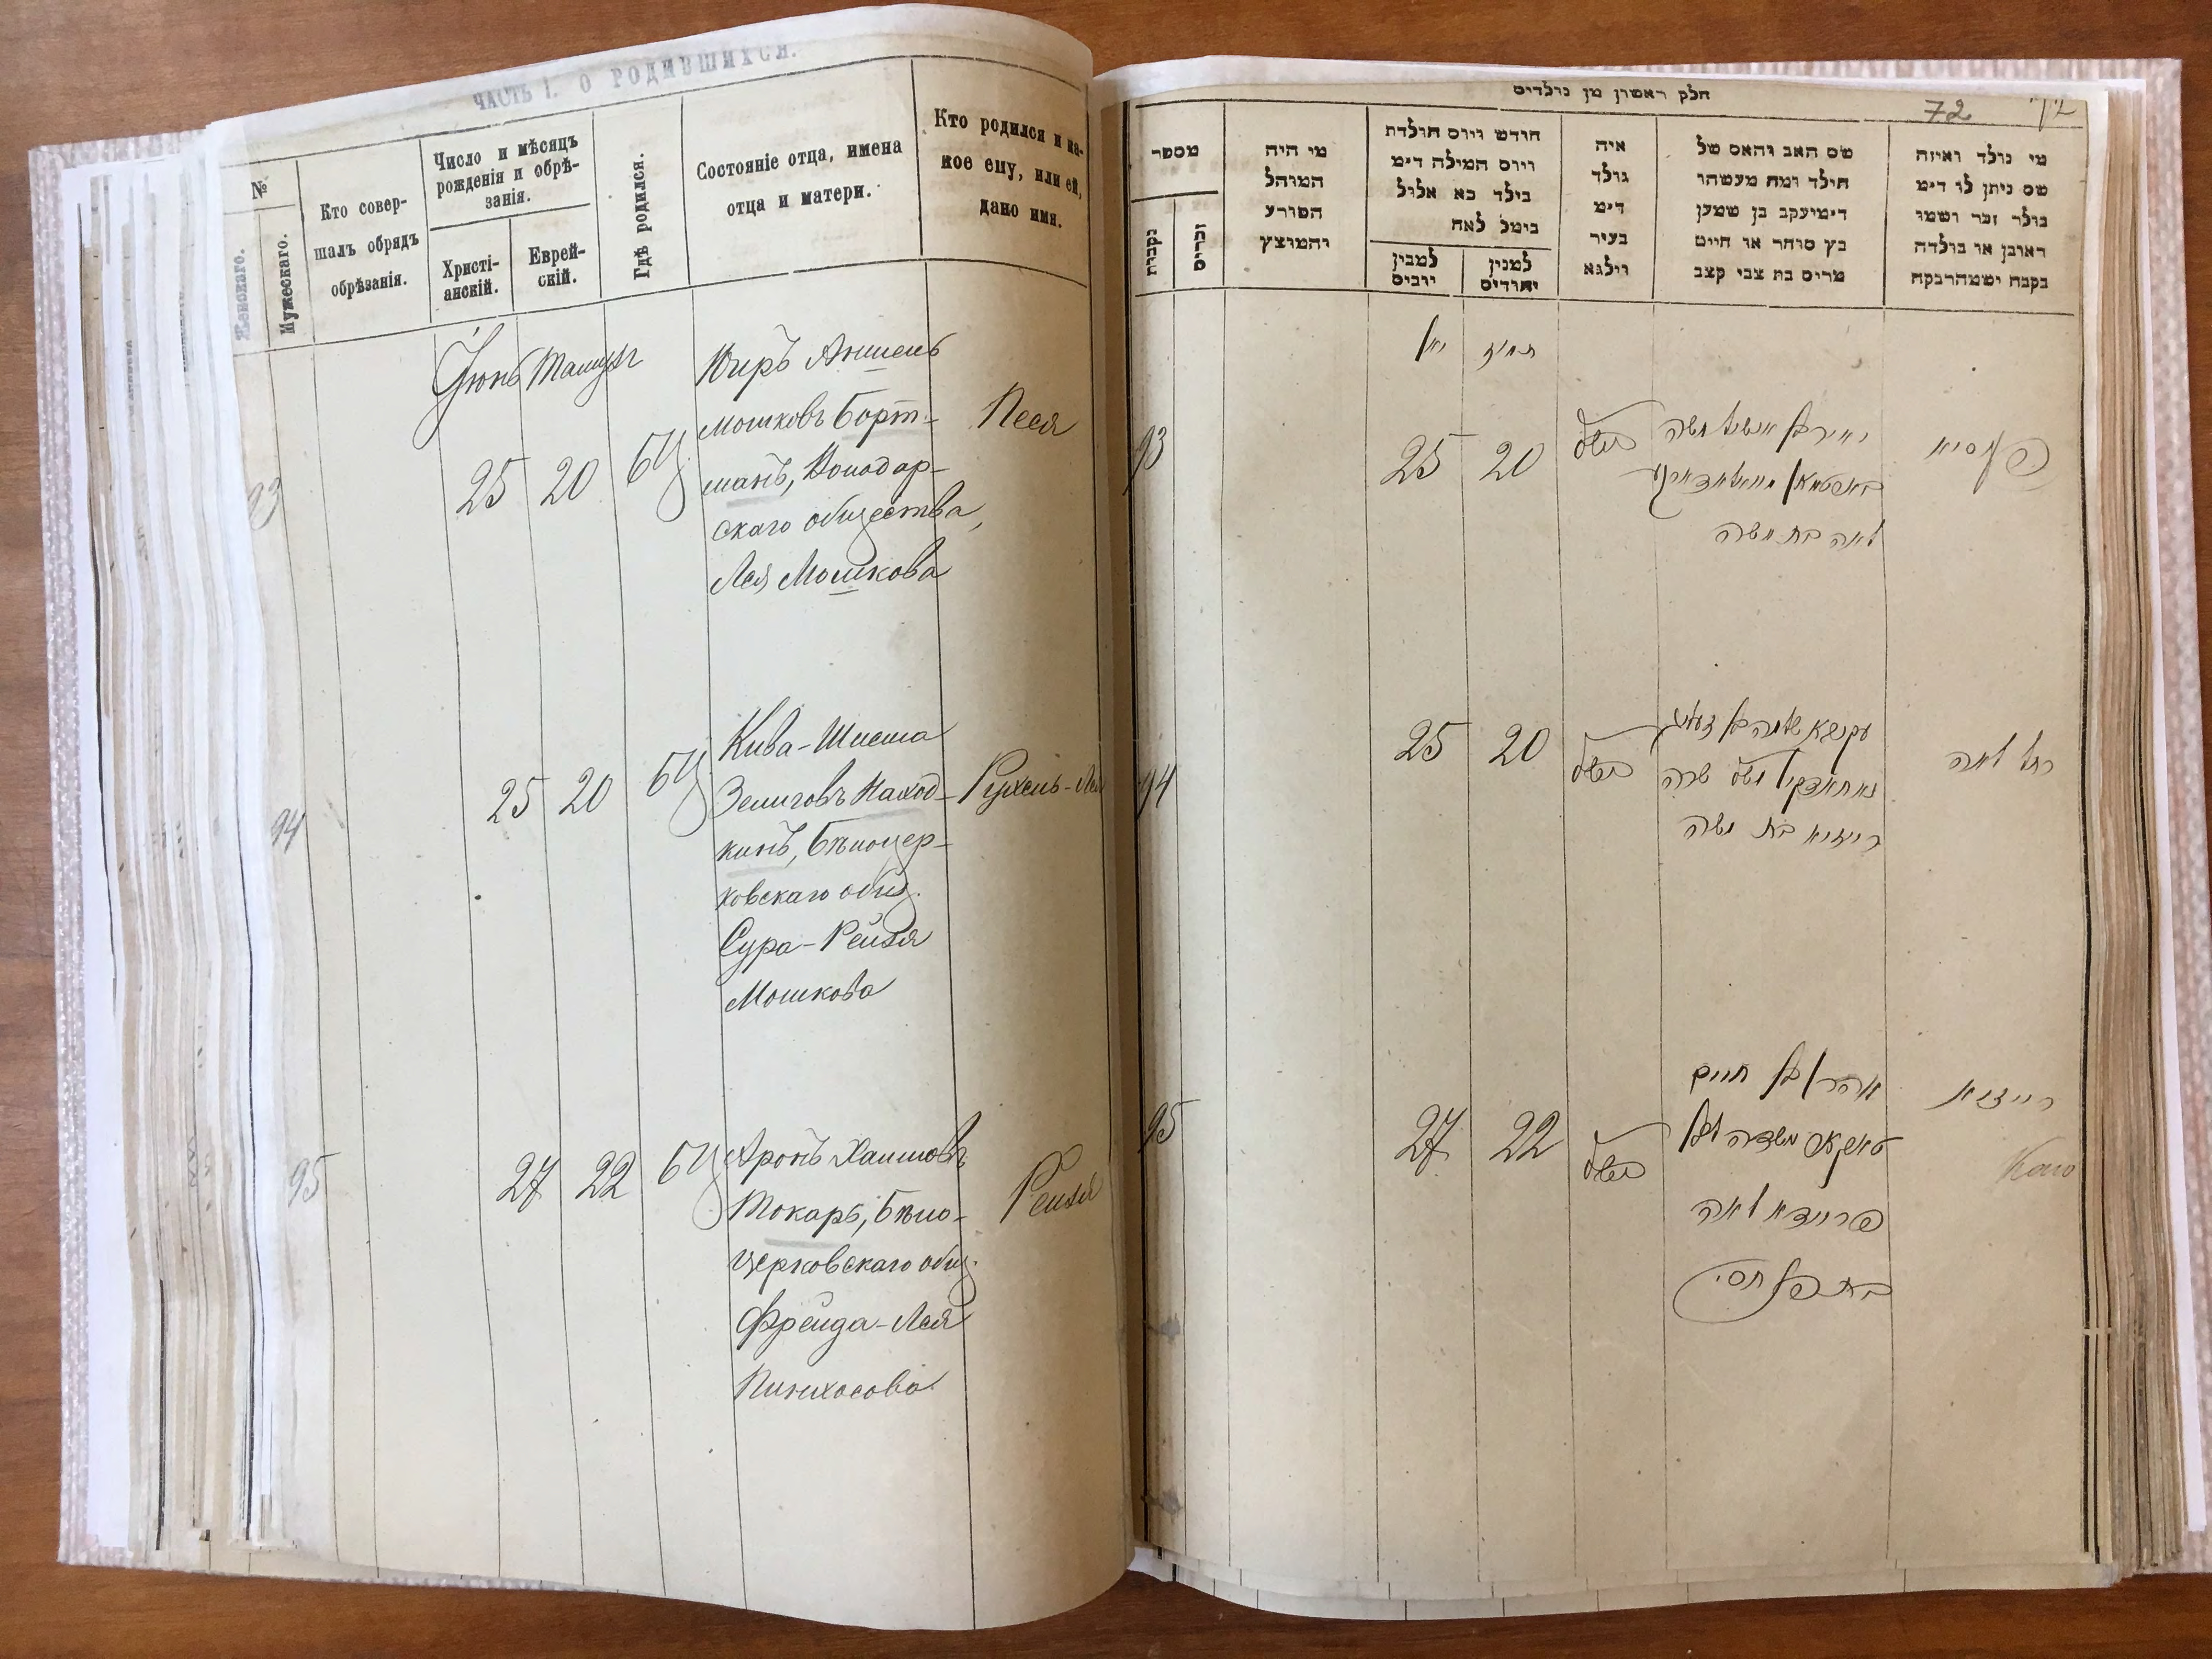 ЧАСТЬ I. О РОДИВШИХСЯ.
№
Женскаго.
Мужескаго.
Кто совер-
шалъ обрядъ
обрѣзанія.
Число и мѣсяцъ
рожденія и обрѣ-
занія.
Христі-
анскій.
Еврей-
скій.
Гдѣ родился.
Состояніе отца, имена
отца и матери.
Кто родился и ка-
кое ему, или ей,
дано имя.
Іюнь Тамузъ
93
25 20 БЦ
Юиръ Аншель
Мошковъ Борт-
манъ, Володар-
скаго общества,
Лея Мошкова
Песя
94
25 20 БЦ
Кива-Шлема
Зелиговъ Наход-
кинъ, Бѣлоцер-
ковскаго общ.
Сура-Рейзя
Мошкова
Рухель-Лея
95
27 22 БЦ
Аронъ Хаимовъ
Токарь, Бѣло-
церковскаго общ.
Фрейда-Лея
Пинхосова
Рейзя
חלק ראשון מן נולדים
72
מספר
נקבות
זכרים
מי היה
המוהל
הפורע
והמוצץ
חודש ויום הולדת
ויום המילה דימ
בילד כא אלול
בימל לאח
למנין
יוניים
למנין
יהודים
איה
נולד
דימ
בעיר
וילנא
שם האב והאם של
הילד ומה מעשהו
דימיעקב בן שמען
כץ סוחר או חיים
מרים בת צבי קצב
מי נולד ואיזה
שם ניתן לו דימ
נולד זכר ושמו
ראובן או נולדה
נקבה ושמה רבקה
יוני תמוז
93
25 20
יאיר בן אנשיל משה
לאה בת משה
פעסיא
94
25 20
עקיבא שלמה בן זעליג
רייזיא בת משה
רחל לאה
95
27 22
אהרן בן חיים
פריידא לאה
בת פנחס
רייזיא